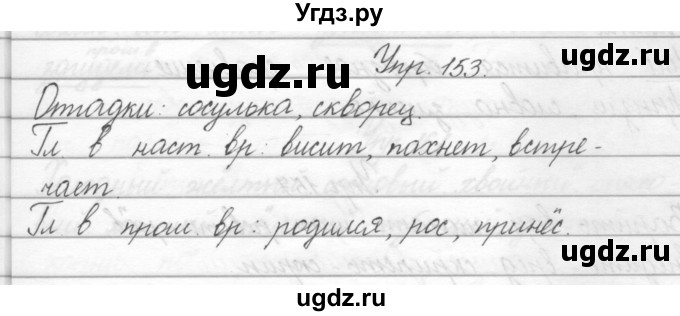 Угдз.ру
Упр. 153.
Отгадки: сосулька, скворец.
Гл. в наст. вр.: висит, пахнет, встре-
чает.
Гл. в прош. вр.: родился, рос, принёс.
ugdz.ru
ugdz.ru
ugdz.ru
ugdz.ru
ugdz.ru
ugdz.ru